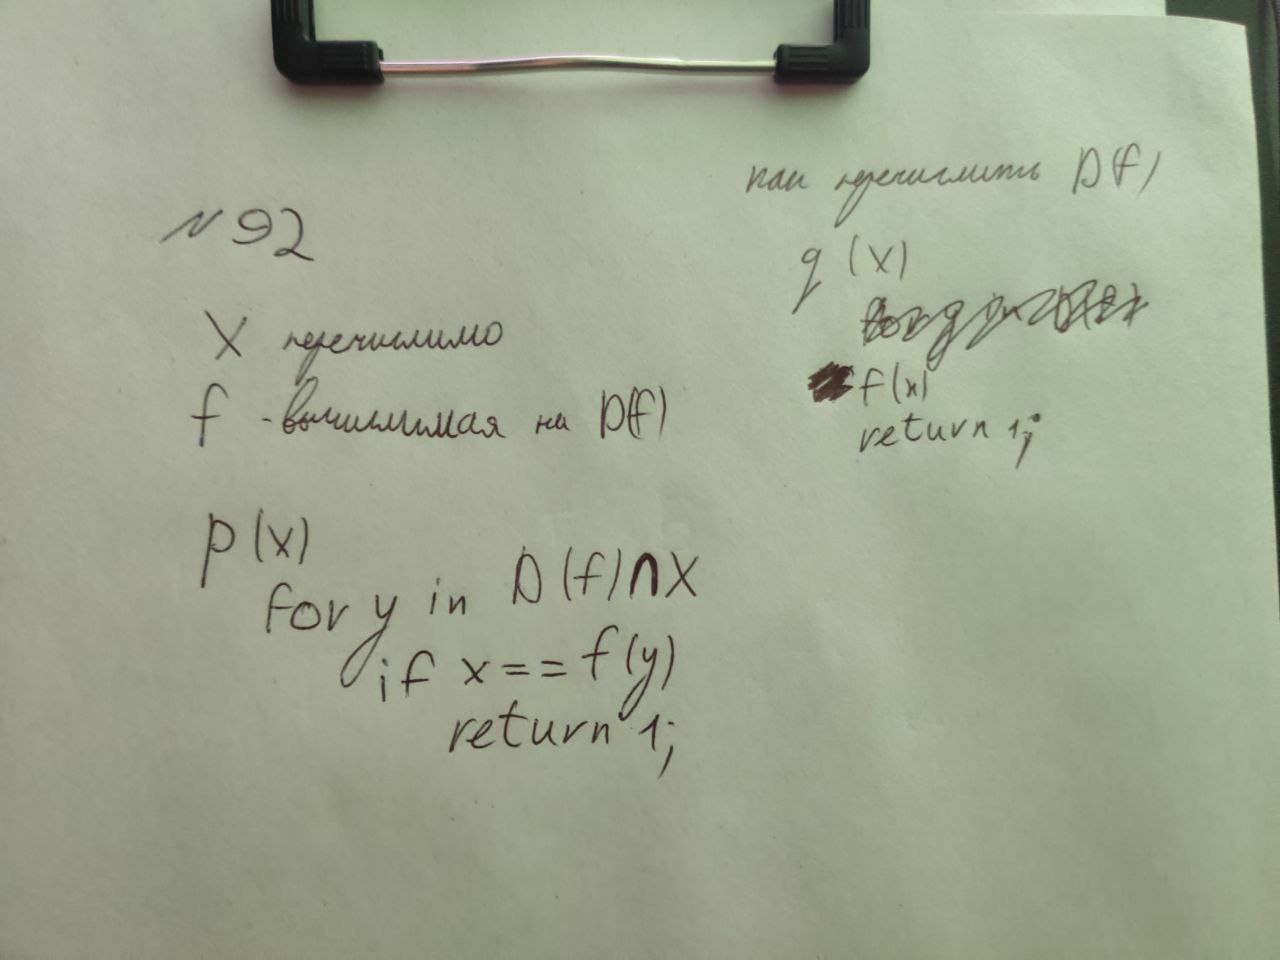 № 92
X перечислимо
f - вычислимая на D(f)
p(x)
for y in D(f)∩X
if x==f(y)
return 1;
как перечислить D(f)
q(x)
f(x)
return 1;